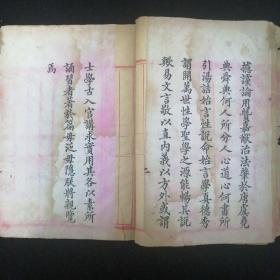 謨謹論用觀嘉猷治法肇於唐虞堯
典舜典何人所分人心道心何書所
引湯誥始言性說命始言學真德秀
謂開萬世性學聖學之源能暢其說
歟易文言敬以直內義以方外或謂
士學古入官講求實用其各以素所
誦習者著於篇毋泛毋隱朕將親覽
焉